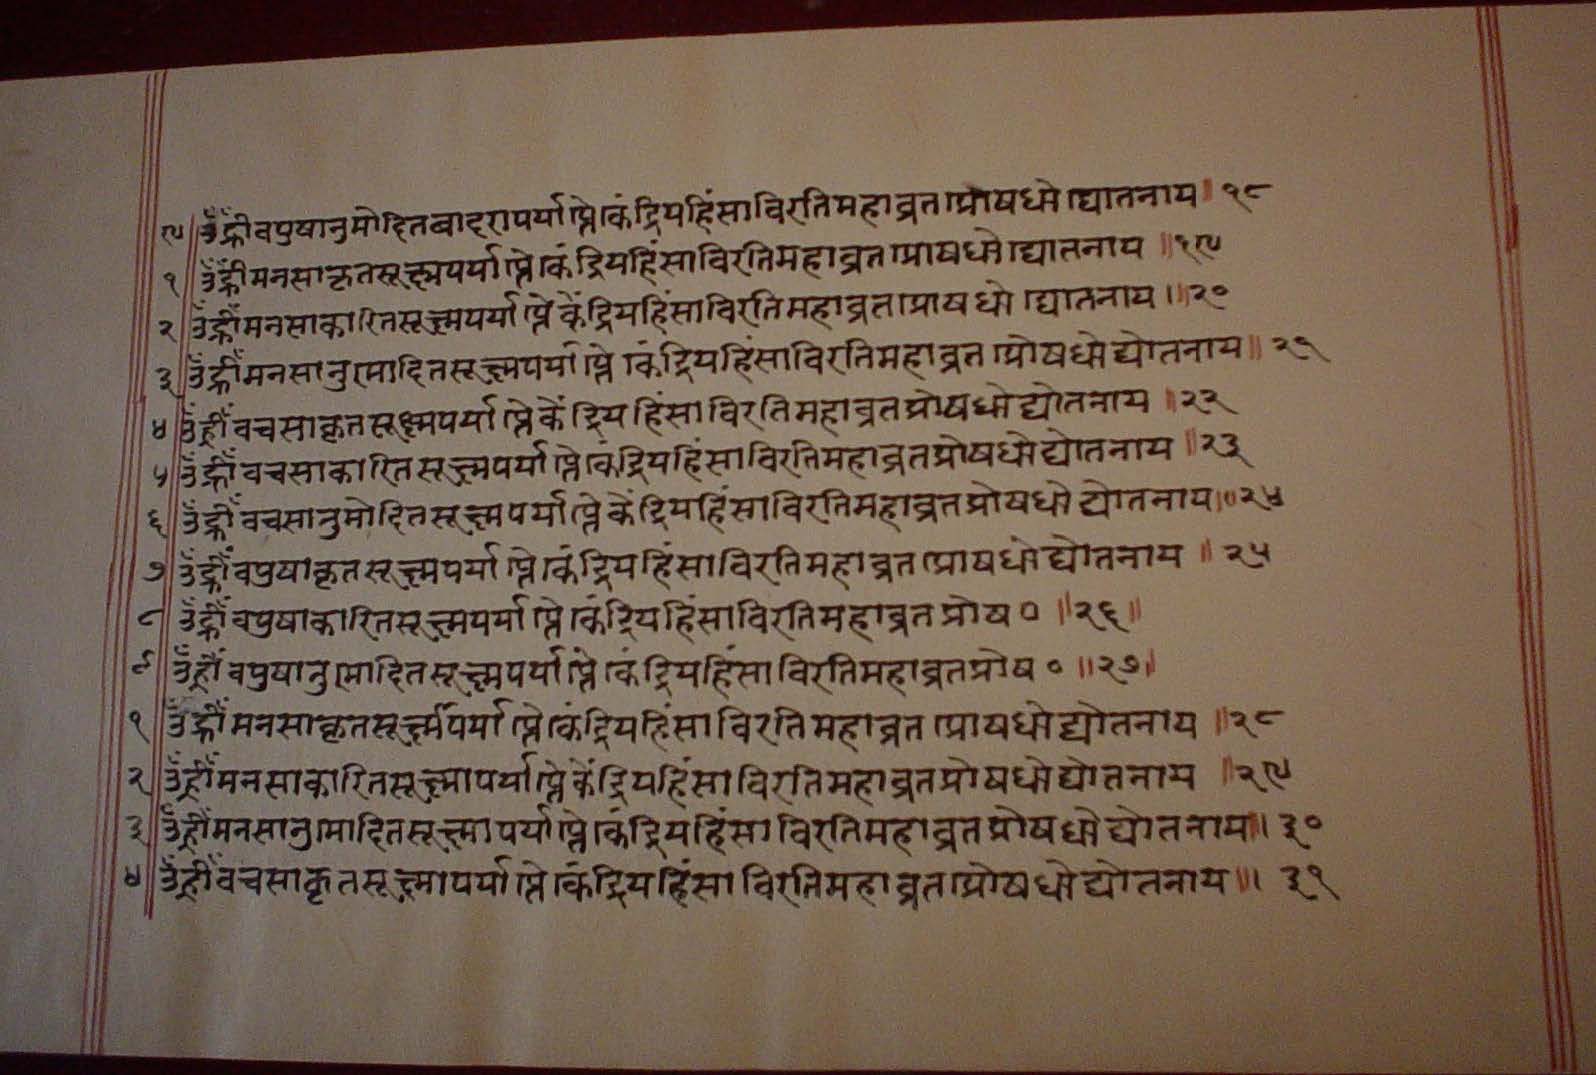 ९ ॐ ह्रीं वपुषानुमोदितबादरापर्याप्तेकेंद्रियहिंसाविरतिमहाव्रतप्रोषधोद्योतनाय ॥ १८
१ ॐ ह्रीं मनसाकृतसूक्ष्मपर्याप्तेकेंद्रियहिंसाविरतिमहाव्रतप्रोषधोद्योतनाय ॥ १९
२ ॐ ह्रीं मनसाकारितसूक्ष्मपर्याप्तेकेंद्रियहिंसाविरतिमहाव्रतप्रोषधोद्योतनाय ॥ २०
३ ॐ ह्रीं मनसानुमोदितसूक्ष्मपर्याप्तेकेंद्रियहिंसाविरतिमहाव्रतप्रोषधोद्योतनाय ॥ २१
४ ॐ ह्रीं वचसाकृतसूक्ष्मपर्याप्तेकेंद्रियहिंसाविरतिमहाव्रतप्रोषधोद्योतनाय ॥ २२
५ ॐ ह्रीं वचसाकारितसूक्ष्मपर्याप्तेकेंद्रियहिंसाविरतिमहाव्रतप्रोषधोद्योतनाय ॥ २३
६ ॐ ह्रीं वचसानुमोदितसूक्ष्मपर्याप्तेकेंद्रियहिंसाविरतिमहाव्रतप्रोषधोद्योतनाय ॥ २४
७ ॐ ह्रीं वपुषाकृतसूक्ष्मपर्याप्तेकेंद्रियहिंसाविरतिमहाव्रतप्रोषधोद्योतनाय ॥ २५
८ ॐ ह्रीं वपुषाकारितसूक्ष्मपर्याप्तेकेंद्रियहिंसाविरतिमहाव्रतप्रोष० ॥ २६ ॥
९ ॐ ह्रीं वपुषानुमोदितसूक्ष्मपर्याप्तेकेंद्रियहिंसाविरतिमहाव्रतप्रोष० ॥ २७ ॥
१ ॐ ह्रीं मनसाकृतसूक्ष्मपर्याप्तेकेंद्रियहिंसाविरतिमहाव्रतप्रोषधोद्योतनाय ॥ २८
२ ॐ ह्रीं मनसाकारितसूक्ष्मापर्याप्तेकेंद्रियहिंसाविरतिमहाव्रतप्रोषधोद्योतनाय ॥ २९
३ ॐ ह्रीं मनसानुमोदितसूक्ष्मापर्याप्तेकेंद्रियहिंसाविरतिमहाव्रतप्रोषधोद्योतनाय ॥ ३०
४ ॐ ह्रीं वचसाकृतसूक्ष्मापर्याप्तेकेंद्रियहिंसाविरतिमहाव्रतप्रोषधोद्योतनाय ॥ ३१